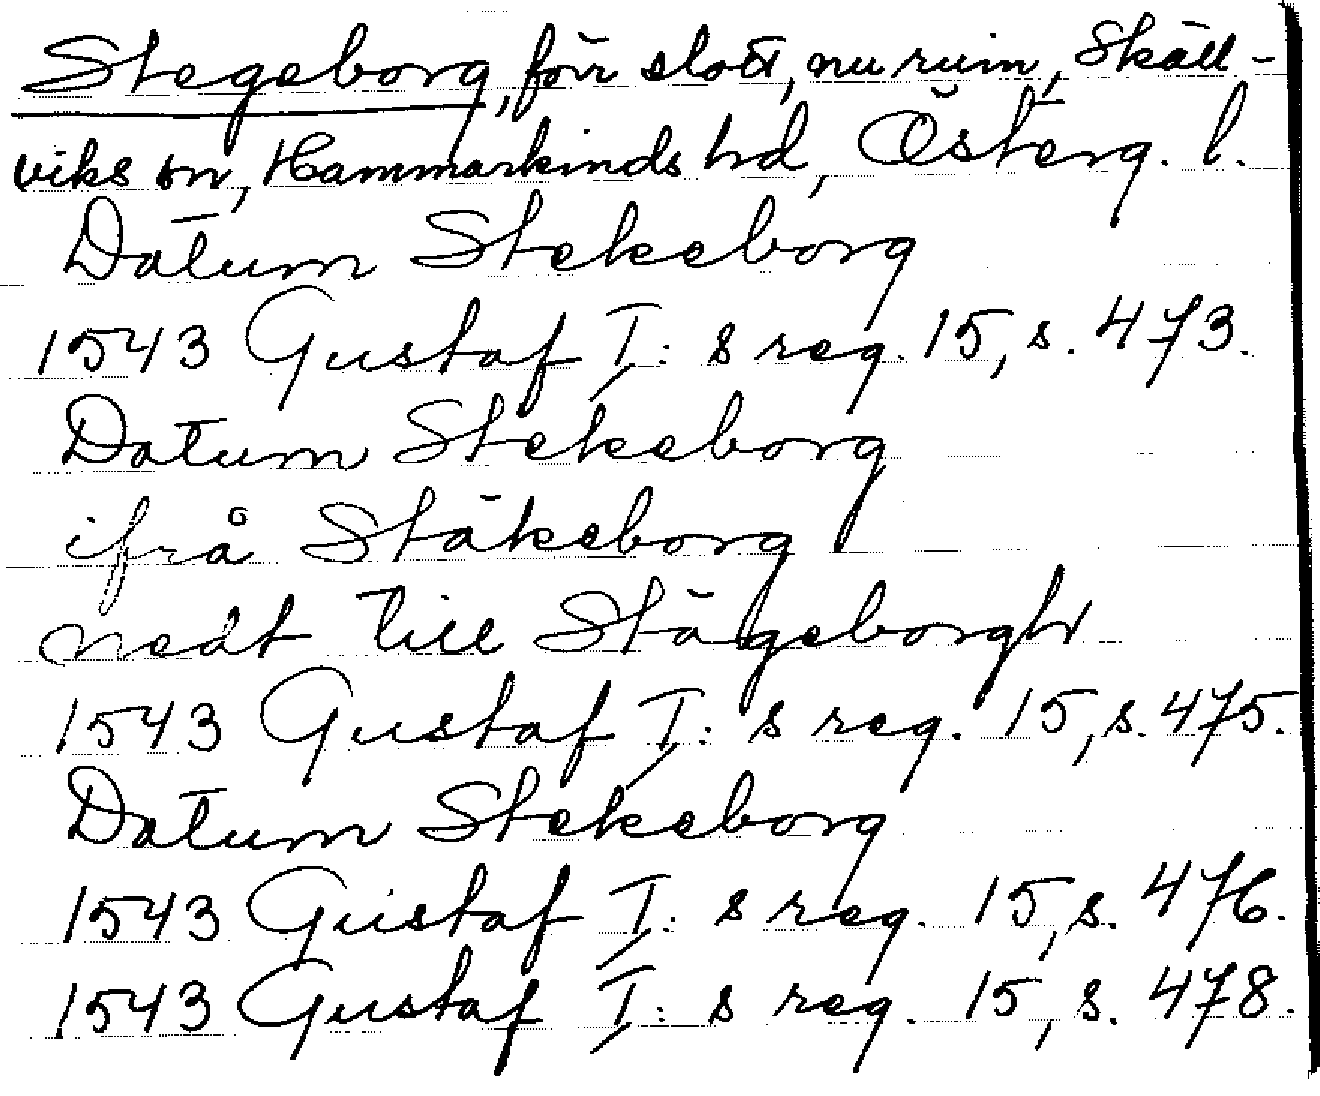 Stegeborg, förr slott, nu ruin, Skäll-
viks sn, Hammarkinds hd, Österg. l.
Datum Stekeborg
1543 Gustaf I:s reg. 15, s. 473.
Datum Stekeborg
ifrå Stäkeborg
nedt till Stägeborgh
1543 Gustaf I:s reg. 15, s. 475.
Datum Stekeborg
1543 Gustaf I:s reg. 15, s. 476.
1543 Gustaf I:s reg. 15, s. 478.